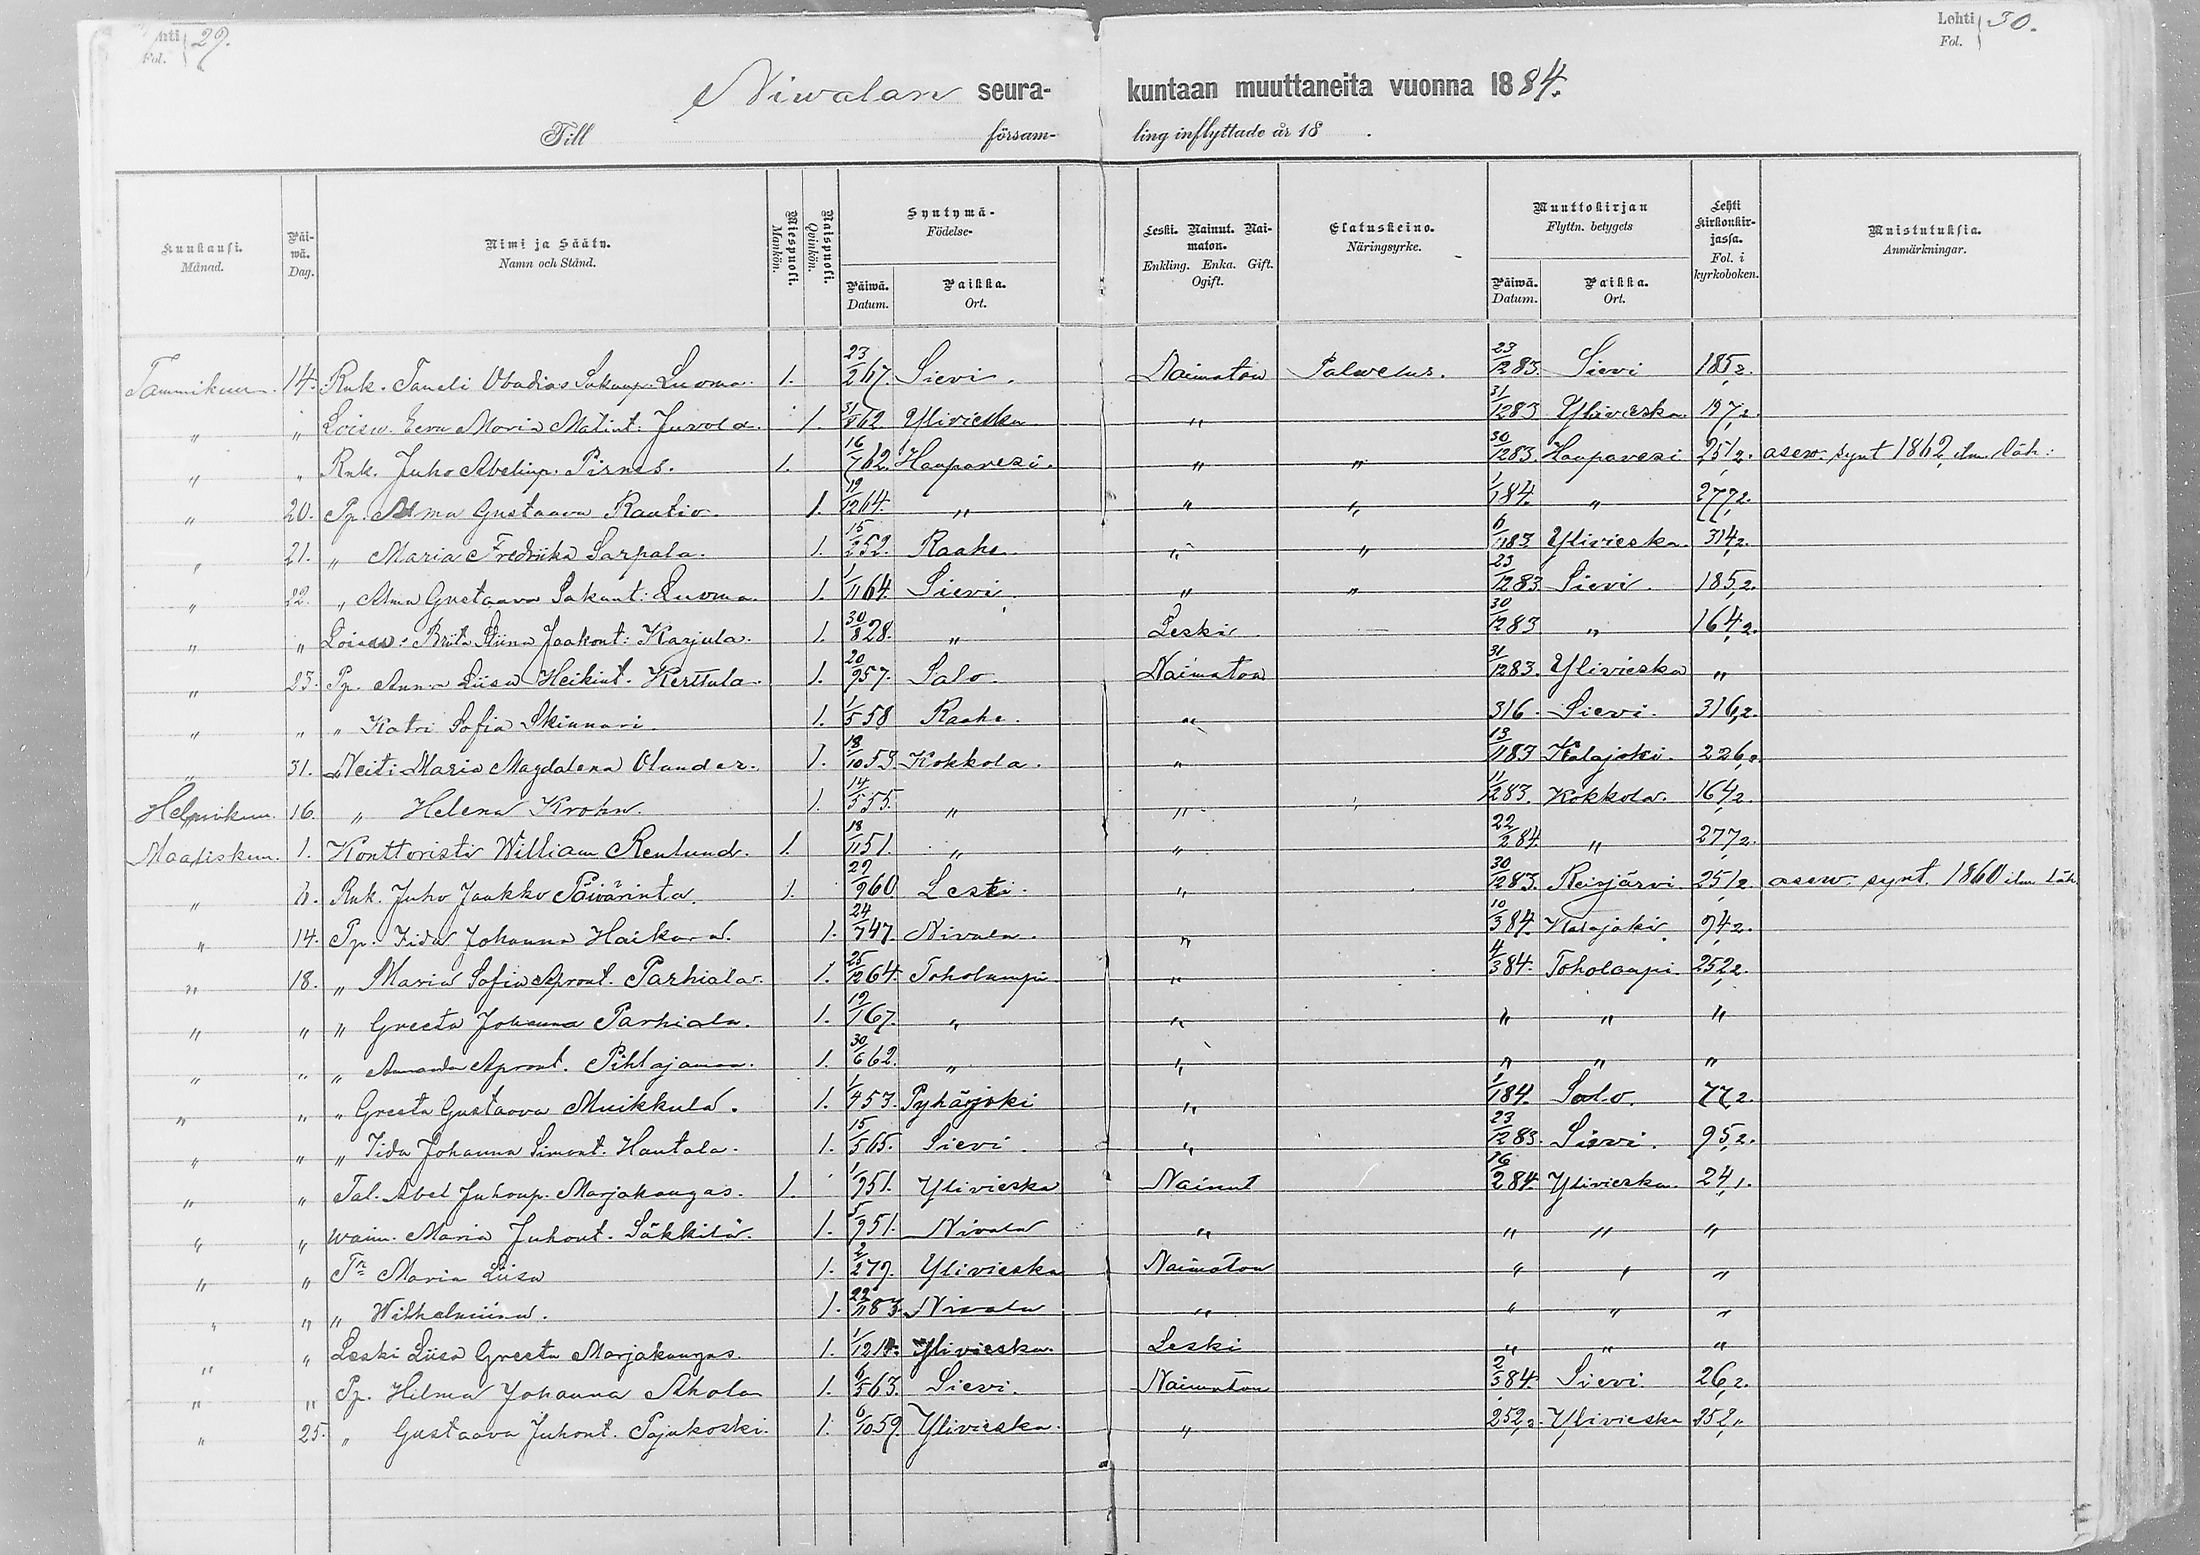 Lehti Fol. 29.
Lehti Fol. 30.
Niwalan seurakuntaan muuttaneita vuonna 1884.
Till församling inflyttade år 18 .
Kuukausi. Månad. Päiwä. Dag. Nimi ja Sääty. Namn och Stånd. Miespuoli. Mankön. Naispuoli. Qvinkön. Syntymä- Födelse- Päiwä. Datum. Paikka. Ort. Leski. Nainut. Naimaton. Enkling. Enka. Gift. Ogift. Elatuskeino. Näringsyrke. Muuttokirjan Flyttn. betygets Päiwä. Datum. Paikka. Ort. Lehti kirkonkirjassa. Fol. i kyrkoboken. Muistutuksia. Anmärkningar.
Tammikuu. 14. Rnk. Taneli Obadias Sakarip. Luoma. 1. 23/2 67. Sievi. Naimaton Palwelus. 23/12 83. Sievi 185,2.
" " Loisw. Eeva Maria Matint: Juvola. 1. 31/8 62 Ylivieska " 31/12 83 Ylivieska 197,2.
" " Rnk. Juho Abelinp. Pirnes. 1. 16/7 62. Haapavesi. " " 30/12 83. Haapavesi 251,2. asew. synt 1862, ilm. läh:
" 20. Pp. Alma Gustaava Raatio. 1. 19/12 64. " " " 1/1 84. " 277,2.
" 21. " Maria Fredriika Sarpala. 1. 15/2 52. Raahe " " 6/11 83 Ylivieska 314,2.
" 22. " Alma Gustaava Sakarit: Luoma 1. 1/11 64. Sievi. " " 23/12 83 Sievi. 185,2.
" " Loisw: Brita Stiina Jaakont: Karjula. 1. 30/8 28. " Leski 30/12 83 " 164,2.
" 23. Pp. Anna Liisa Heikint. Kerttula. 1. 20/9 57. Salo. Naimaton 31/12 83. Ylivieska "
" " " Katri Sofia Skinnari. 1. 1/5 58 Raahe. " 316. Sievi. 316,2.
" 31. Neiti Maria Magdalena Olander. 1. 18/10 53. Kokkola. " 13/11 83 Kalajoki. 226,2
Helmikuu. 16. " Helena Krohn. 1. 14/5 55. " " 11/12 83. Kokkola. 164,2.
Maaliskuu. 1. Konttoristi William Renlund. 1. 18/11 51. " " 22/2 84. " 277,2.
" 8. Rnk. Juho Jaakko Päivärinta. 1. 29/9 60 Lesti. " 30/12 83. Reisjärvi 251,2 asew. synt. 1860 ilm. läh.
" 14. Pp. Iida Johanna Haikara. 1. 24/7 47. Nivala. " 10/3 84. Kalajoki 94,2.
" 18. " Maria Sofia Apront. Parhiala. 1. 25/12 64. Toholampi " 4/3 84. Toholampi 252,2.
" " " Greeta Johanna Parhiala. 1. 19/1 67. " " " " "
" " " Amanda Apront. Pihlajamaa. 1. 30/6 62. " " " " "
" " " Greeta Gustaava Muikkula. 1. 1/4 53. Pyhäjoki " 1/1 84. Salo. 77,2.
" " " Iida Johanna Simont. Hautala. 1. 15/5 65. Sievi. " 23/12 83. Sievi. 95,2.
" " Tal. Abel Juhonp. Marjakangas. 1. 1/9 51. Ylivieska Nainut 16/2 84. Ylivieska 24,1.
" " waim. Maria Juhont. Säkkilä. 1. 5/9 51. Nivala " " " "
" " Tr Maria Liisa 1. 2/2 79. Ylivieska Naimaton " " "
" " " Wilhelmiina. 1. 22/11 83. Nivala " " " "
" " Leski Liisa Greeta Marjakangas. 1. 1/12 Ylivieska. Leski " " "
" " Pp. Hilma Johanna Ahola 1. 6/5 63. Sievi. Naimaton 2/3 84. Sievi. 26,2.
" 25. " Gustaava Juhont. Pajukoski. 1. 6/10 59. Ylivieska. " 252,2. Ylivieska 252,"